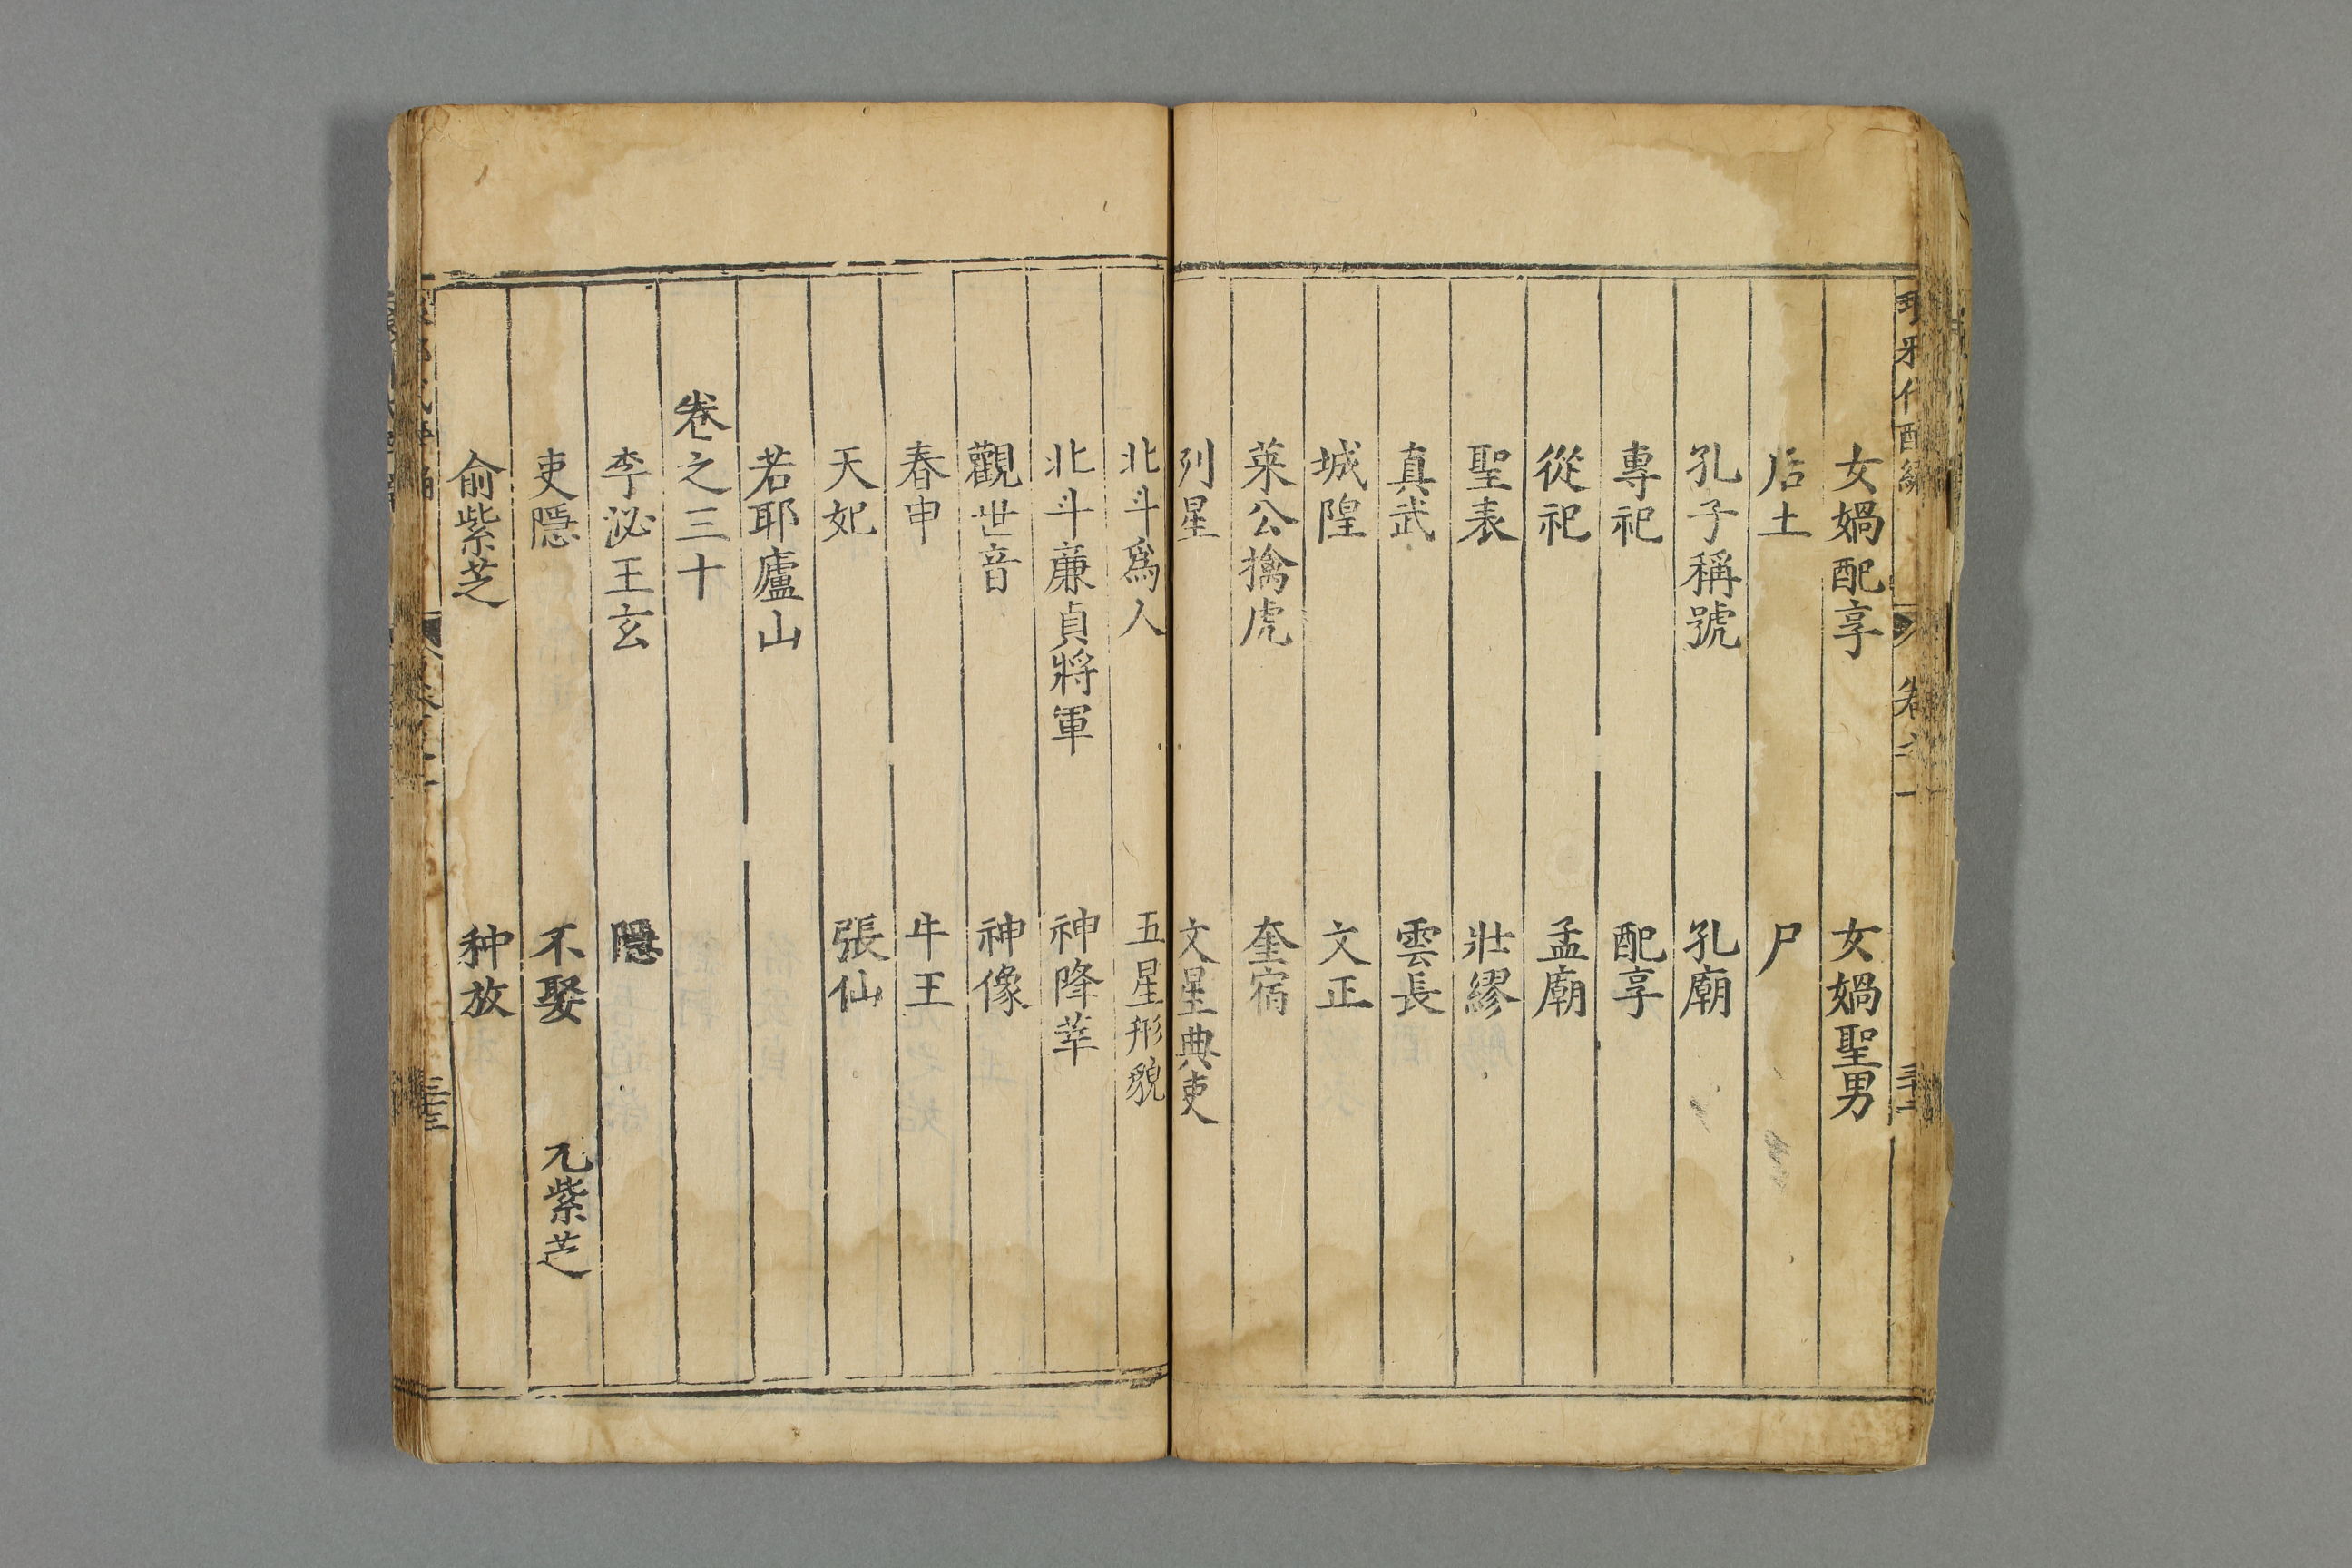 女媧配享　女媧聖男
后土　尸
孔子稱號　孔廟
專祀　配享
從祀　孟廟
聖表　壯繆
真武　雲長
城隍　文正
萊公擒虎　奎宿
列星　文星典吏
北斗爲人　五星形貌
北斗廉貞將軍　神降莘
觀世音　神像
春申　牛王
天妃　張仙
若耶廬山
卷之三十
李泌王玄　隱
吏隱　不娶　元紫芝
俞紫芝　种放